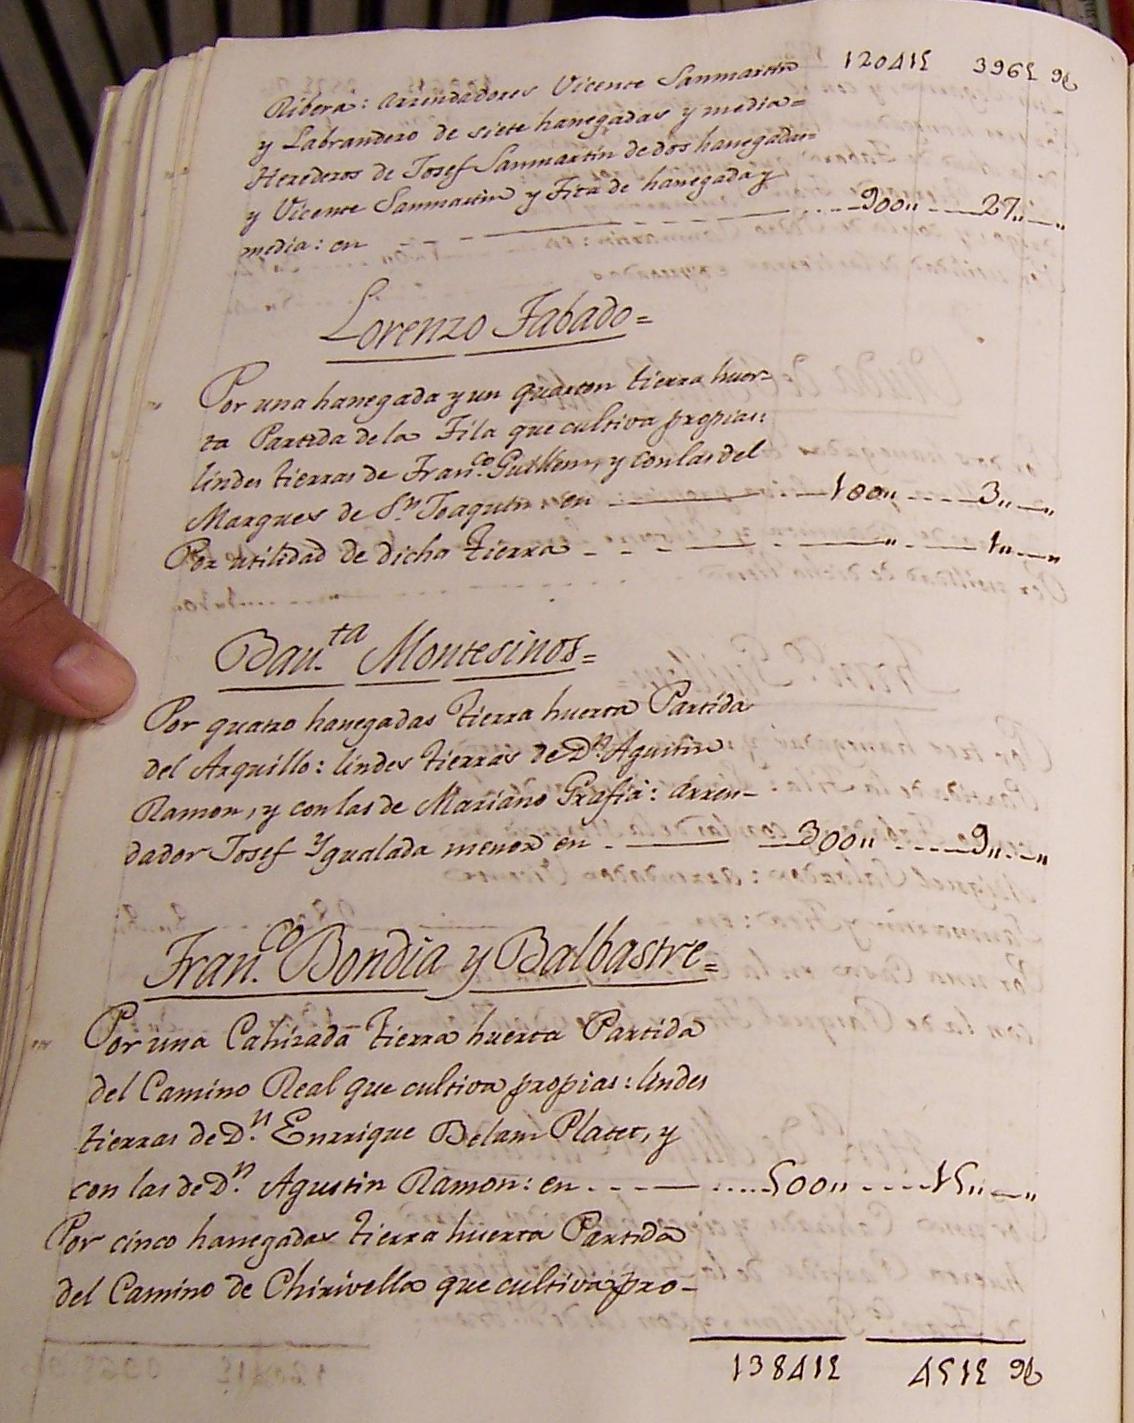 Ribera: arrendadores Vicente Sanmartin 120415 3965 96
y Labrandero de siete hanegadas y media=
Herederos de Josef Sanmartin de dos hanegadas=
y Vicente Sanmartin y Fita de hanegada y
media: en 900,, 27,, ,,
Lorenzo Fabado=
Por una hanegada y un quarton tierra huer-
ta Partida de la Fila que cultiva propias:
lindes tierras de Fran.co Guillem, y con las del
Marques de S.n Joaquin: en 100,, 3,, ,,
Por utilidad de dicha tierra ,, 1,, ,,
Bau.ta Montesinos=
Por quatro hanegadas tierra huerta Partida
del Arquillo: lindes tierras de D.n Agustin
Ramon, y con las de Mariano Grafia: arren-
dador Josef Ygualada menor en 300,, 9,, ,,
Fran.co Bondia y Balbastre=
Por una Cahizada tierra huerta Partida
del Camino Real que cultiva propias: lindes
tierras de D.n Enrrique Belam Platet, y
con las de D.n Agustin Ramon: en 500,, 15,, ,,
Por cinco hanegadas tierra huerta Partida
del Camino de Chirivella que cultiva pro-
138415 4515 96